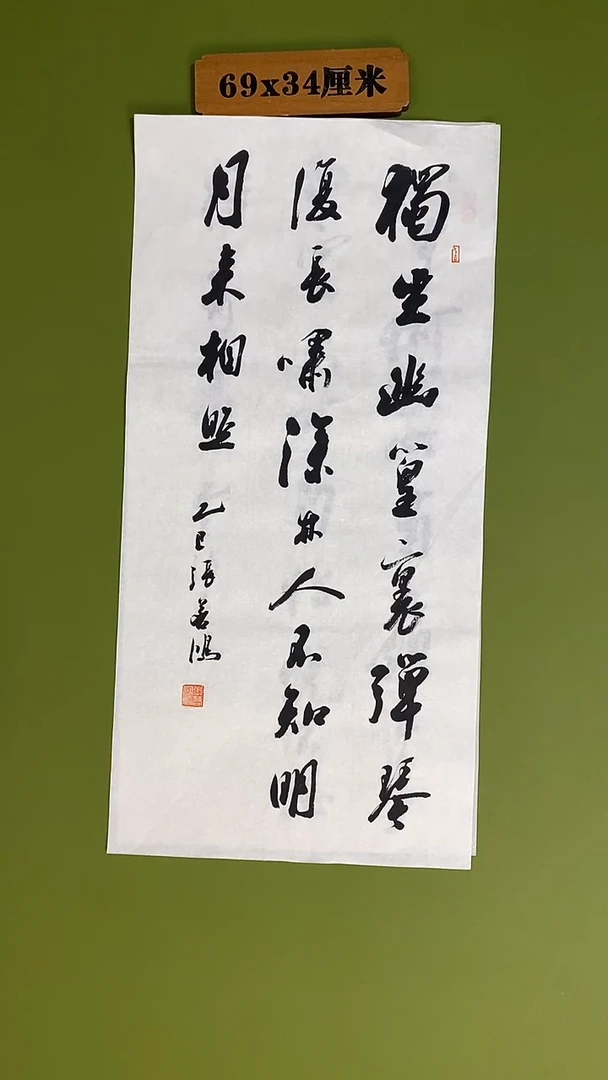 69x34厘米
獨坐幽篁裏彈琴
復長嘯深林人不知明
月来相照
乙巳張若鴻